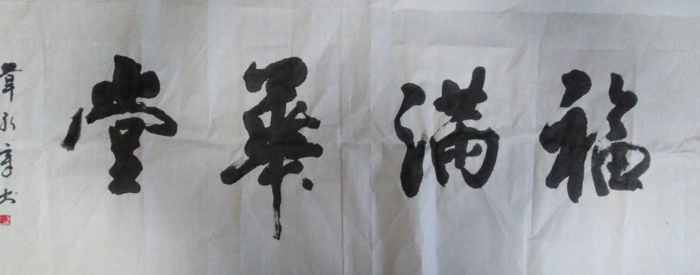 福满华堂